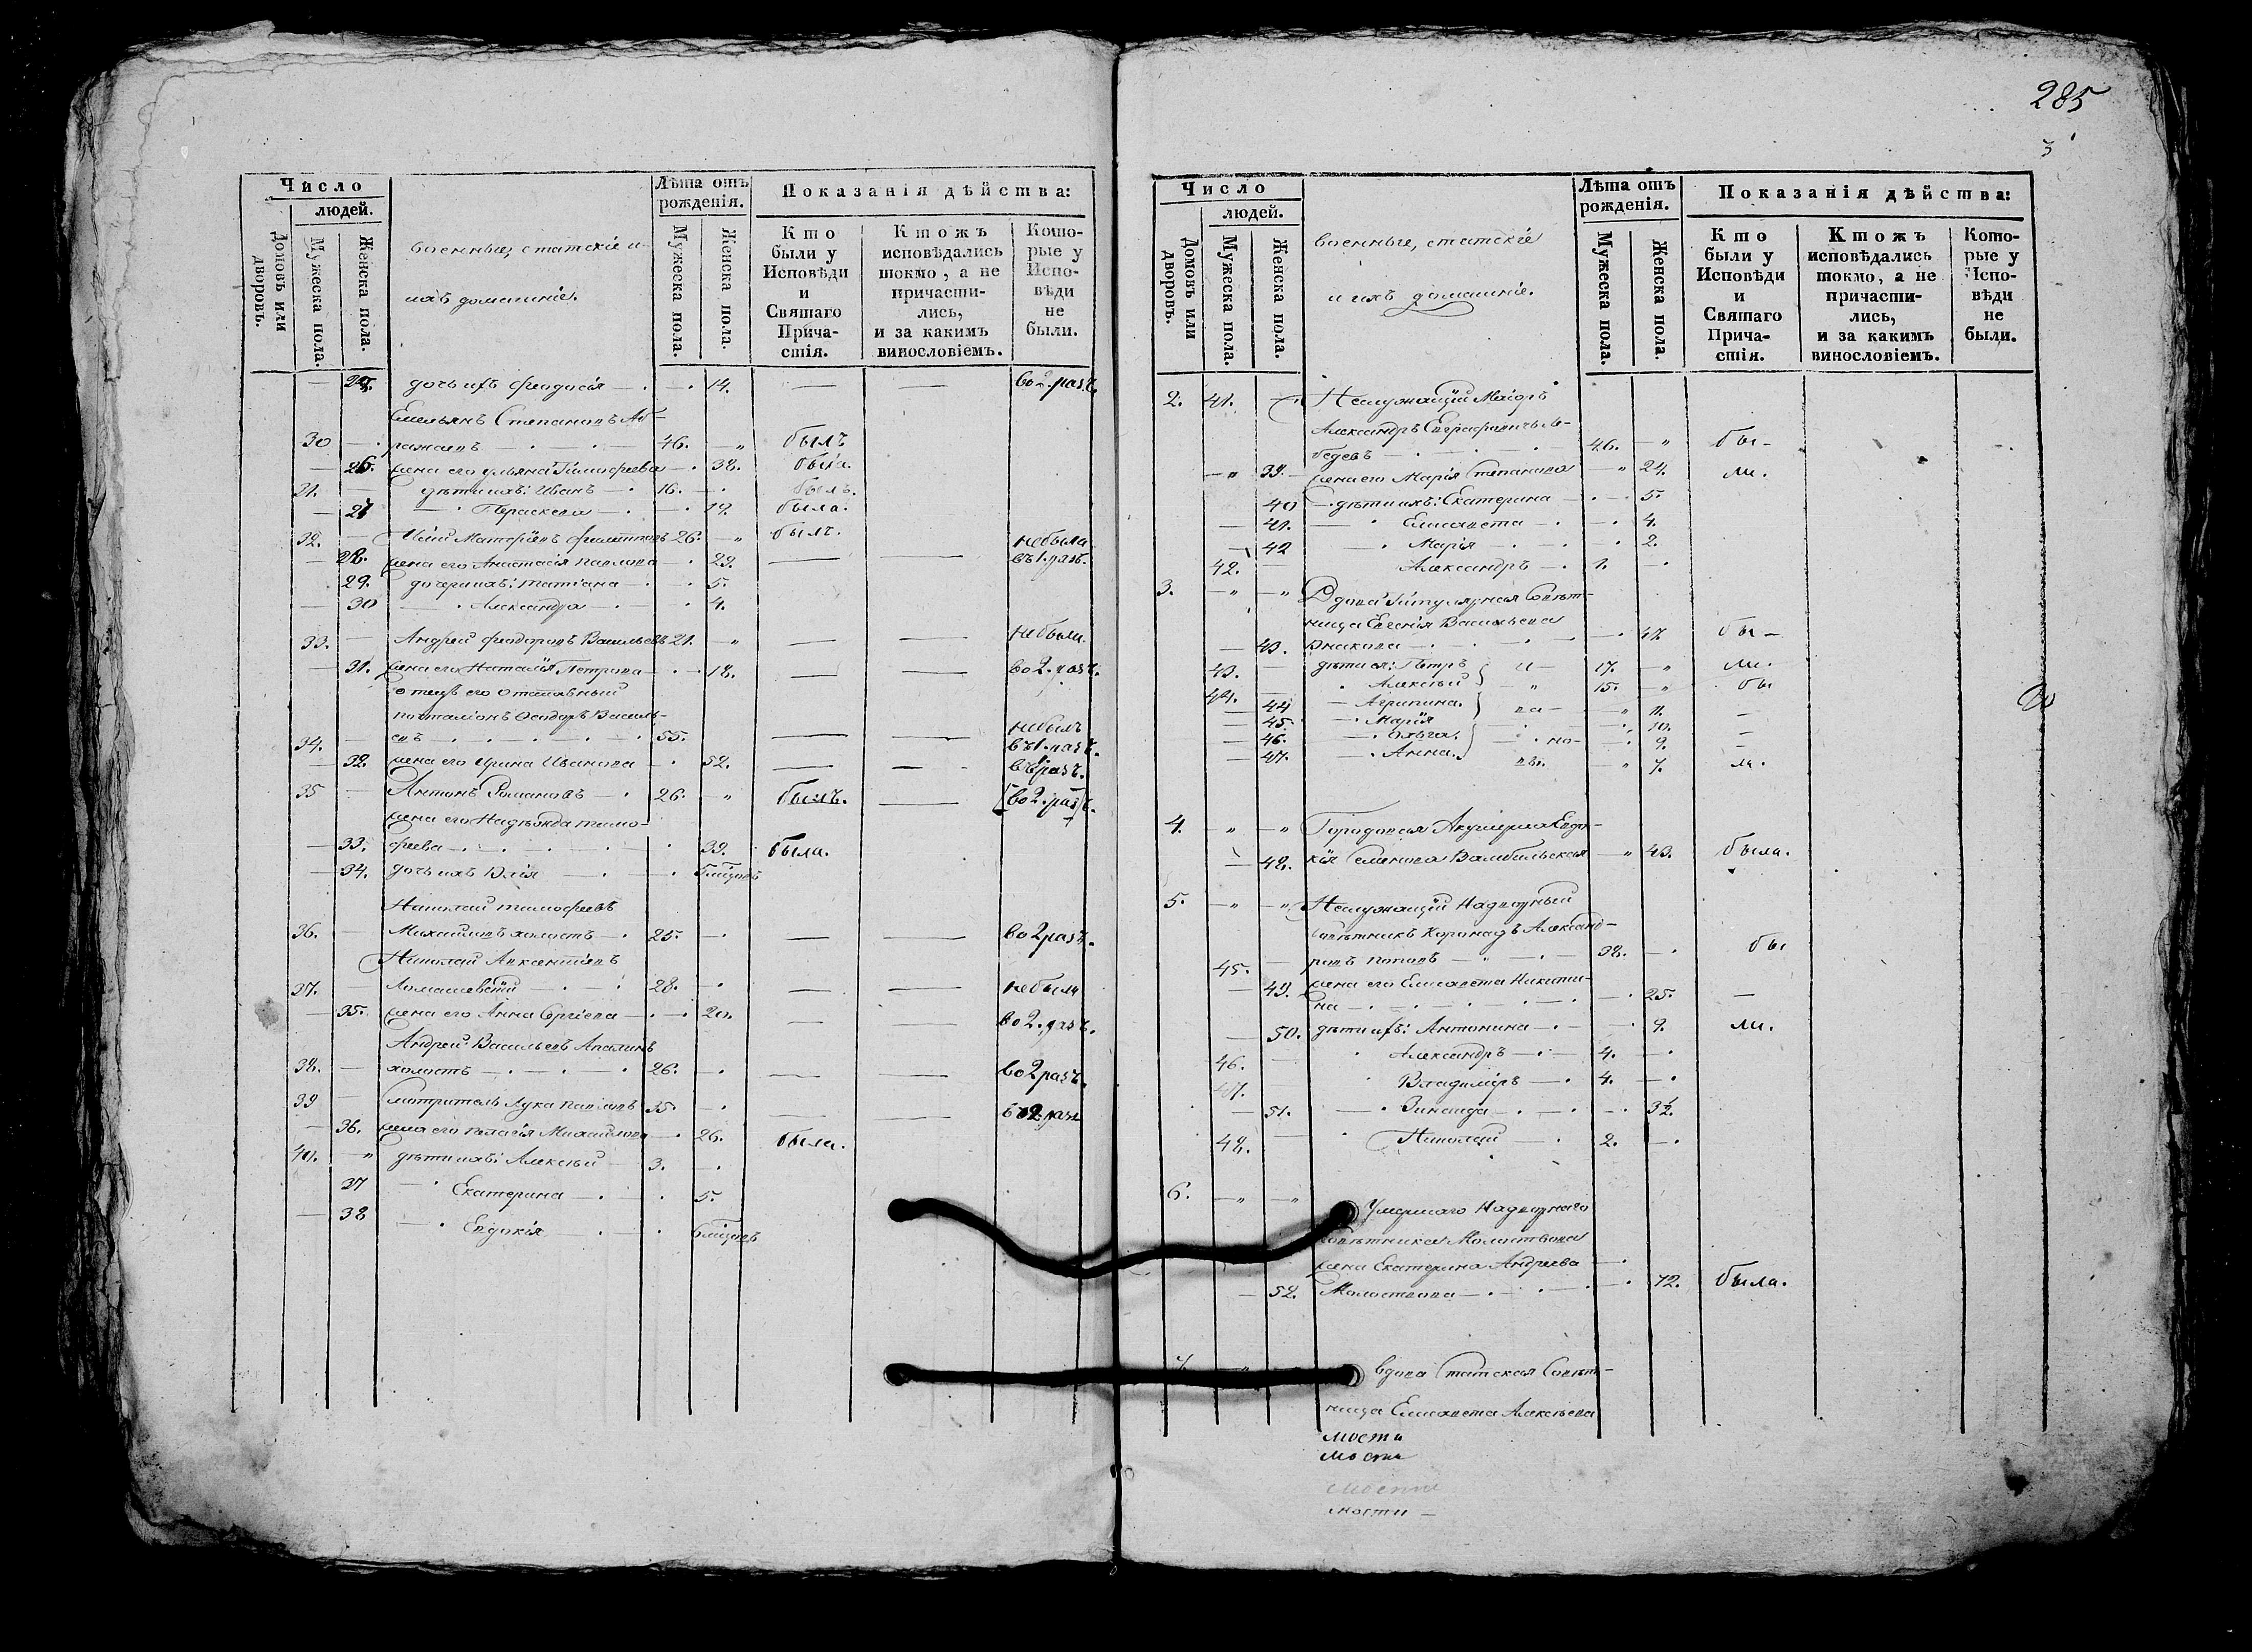 Число
людей.
Домовъ или дворовъ.
Мужеска пола.
Женска пола.
военные, статскіе и
ихъ домашніе.
Лѣта отъ рожденія.
Мужеска пола.
Женска пола.
Показанія дѣйства:
Кто были у Исповѣди и Святаго Прича-стія.
Ктожъ исповѣдались токмо, а не причасти-лись, и за какимъ винословіемъ.
Кото-рые у Испо-вѣди не были.
— дочь ихъ Феодосія — . — . 14. — — во 2. разъ.
Емельянъ Степановъ
30 — 46. — " былъ
— 26. жена его Ульяна Тимофеева — . 38. была.
31. — дѣти ихъ: Иванъ — . 16. — . былъ.
— 27 — . Параскева — . — . 19. была.
32. — Матфіевъ 26. — " былъ.
— 28. жена его Анастасія Павлова — . 23. — — не была въ 1. разъ.
29. дочери ихъ: Татіана — . 5.
— 30 — . Александра — . . 4.
33. — Андрей Феодоровъ Васильевъ 21. — " — — не были
— 31. жена его Наталія Петрова — . — 18. — — во 2. разъ.
отецъ его отставный
почталіонъ Феодоръ Василь-
34. — евъ — . — . — . 55. — — не былъ въ 1. разъ.
— 32. жена его Ирина Иванова — . 52. — — . въ разъ.
35 — Антонъ Романовъ — . 26. — " былъ. — во 2. разъ.
жена его Надежда Тимо-
— 33. феева — . — . — . 39. была.
— 34. дочь ихъ Юлія — . — . мѣсяцовъ
Николай Тимофеевъ
36. — Михайловъ холостъ — . 25. — . — — во 2 разъ.
Николай Авксентіевъ
37. — 28. — . — — не были
— 35. жена его Анна Сергіева — . — . 20. — — во 2. разъ.
Андрей Васильевъ
38. — холостъ — . — . — . 26. — . — — во 2 разъ.
39 — смотритель Лука Павловъ 35. — . — — во 2. разъ
— 36. жена его Пелагія Михайлова — . 26. была.
40. — " дѣти ихъ: Алексѣй — 3. — .
37 — . Екатерина — . . 5.
— 38 — . Евдокія — . . 6 мѣсяцовъ
285
3
Число
людей.
Домовъ или дворовъ.
Мужеска пола.
Женска пола.
военные, статскіе
и ихъ домашніе.
Лѣта отъ рожденія.
Мужеска пола.
Женска пола.
Показанія дѣйства:
Кто были у Исповѣди и Святаго Прича-стія.
Ктожъ исповѣдались токмо, а не причасти-лись, и за какимъ винословіемъ.
Кото-рые у Испо-вѣди не были.
2. 41. — . Неслужащій Маіоръ
Александръ Евграфовичь Ле-
бедевъ — . — . 46. — " бы-
— " 39. жена его Марія Степанова — " 24. ли.
40 — дѣти ихъ: Екатерина — . — . 5.
— 41. — . Елисавета — . — . 4.
— 42 — . Марія — . — . 2.
42. — Александръ — . 1. — .
3. — " — " Вдова Титулярная Совѣт-
ница Евгенія Васильева
— 43. — . — . — . 47 бы —
43. — дѣти ея: Петръ 17. — " ли.
44. — . Алексѣй — " 15. — " бы
— 44 — Агрипина. — " 11. —
— 45. — . Марія — . 10. —
— 46. — . Ольга. — . 9. —
— 47. — . Анна. — " 7. ли.
4. — " — " Городовая Акушерка Евдо-
— 48. кія Семенова — " 43. была.
5. — " — " Неслужащій Надворный
Совѣтникъ Коронадъ Александ-
45. — ровъ Поповъ — . — . — 38. — . бы
— 49. жена его Елисавета Никити-
на — . — . — . — . 25. —
— 50. дѣти ихъ: Антонина — . — . 9. ли.
46. — . Александръ — . 4. — .
47. . Владиміръ — . 4. — .
— 51. — . Зинаида — . — . 3½.
48. — . Николай — . 2. — .
6. — " — " Умершаго Надворнаго
Совѣтника Молоствова
жена Екатерина Андреева — .
— 52. Молоствова — . — . — . 72. была.
7. — " вдова Статская Совѣт-
ница Елисавета Алексѣева
мости
мости
мости
мости —